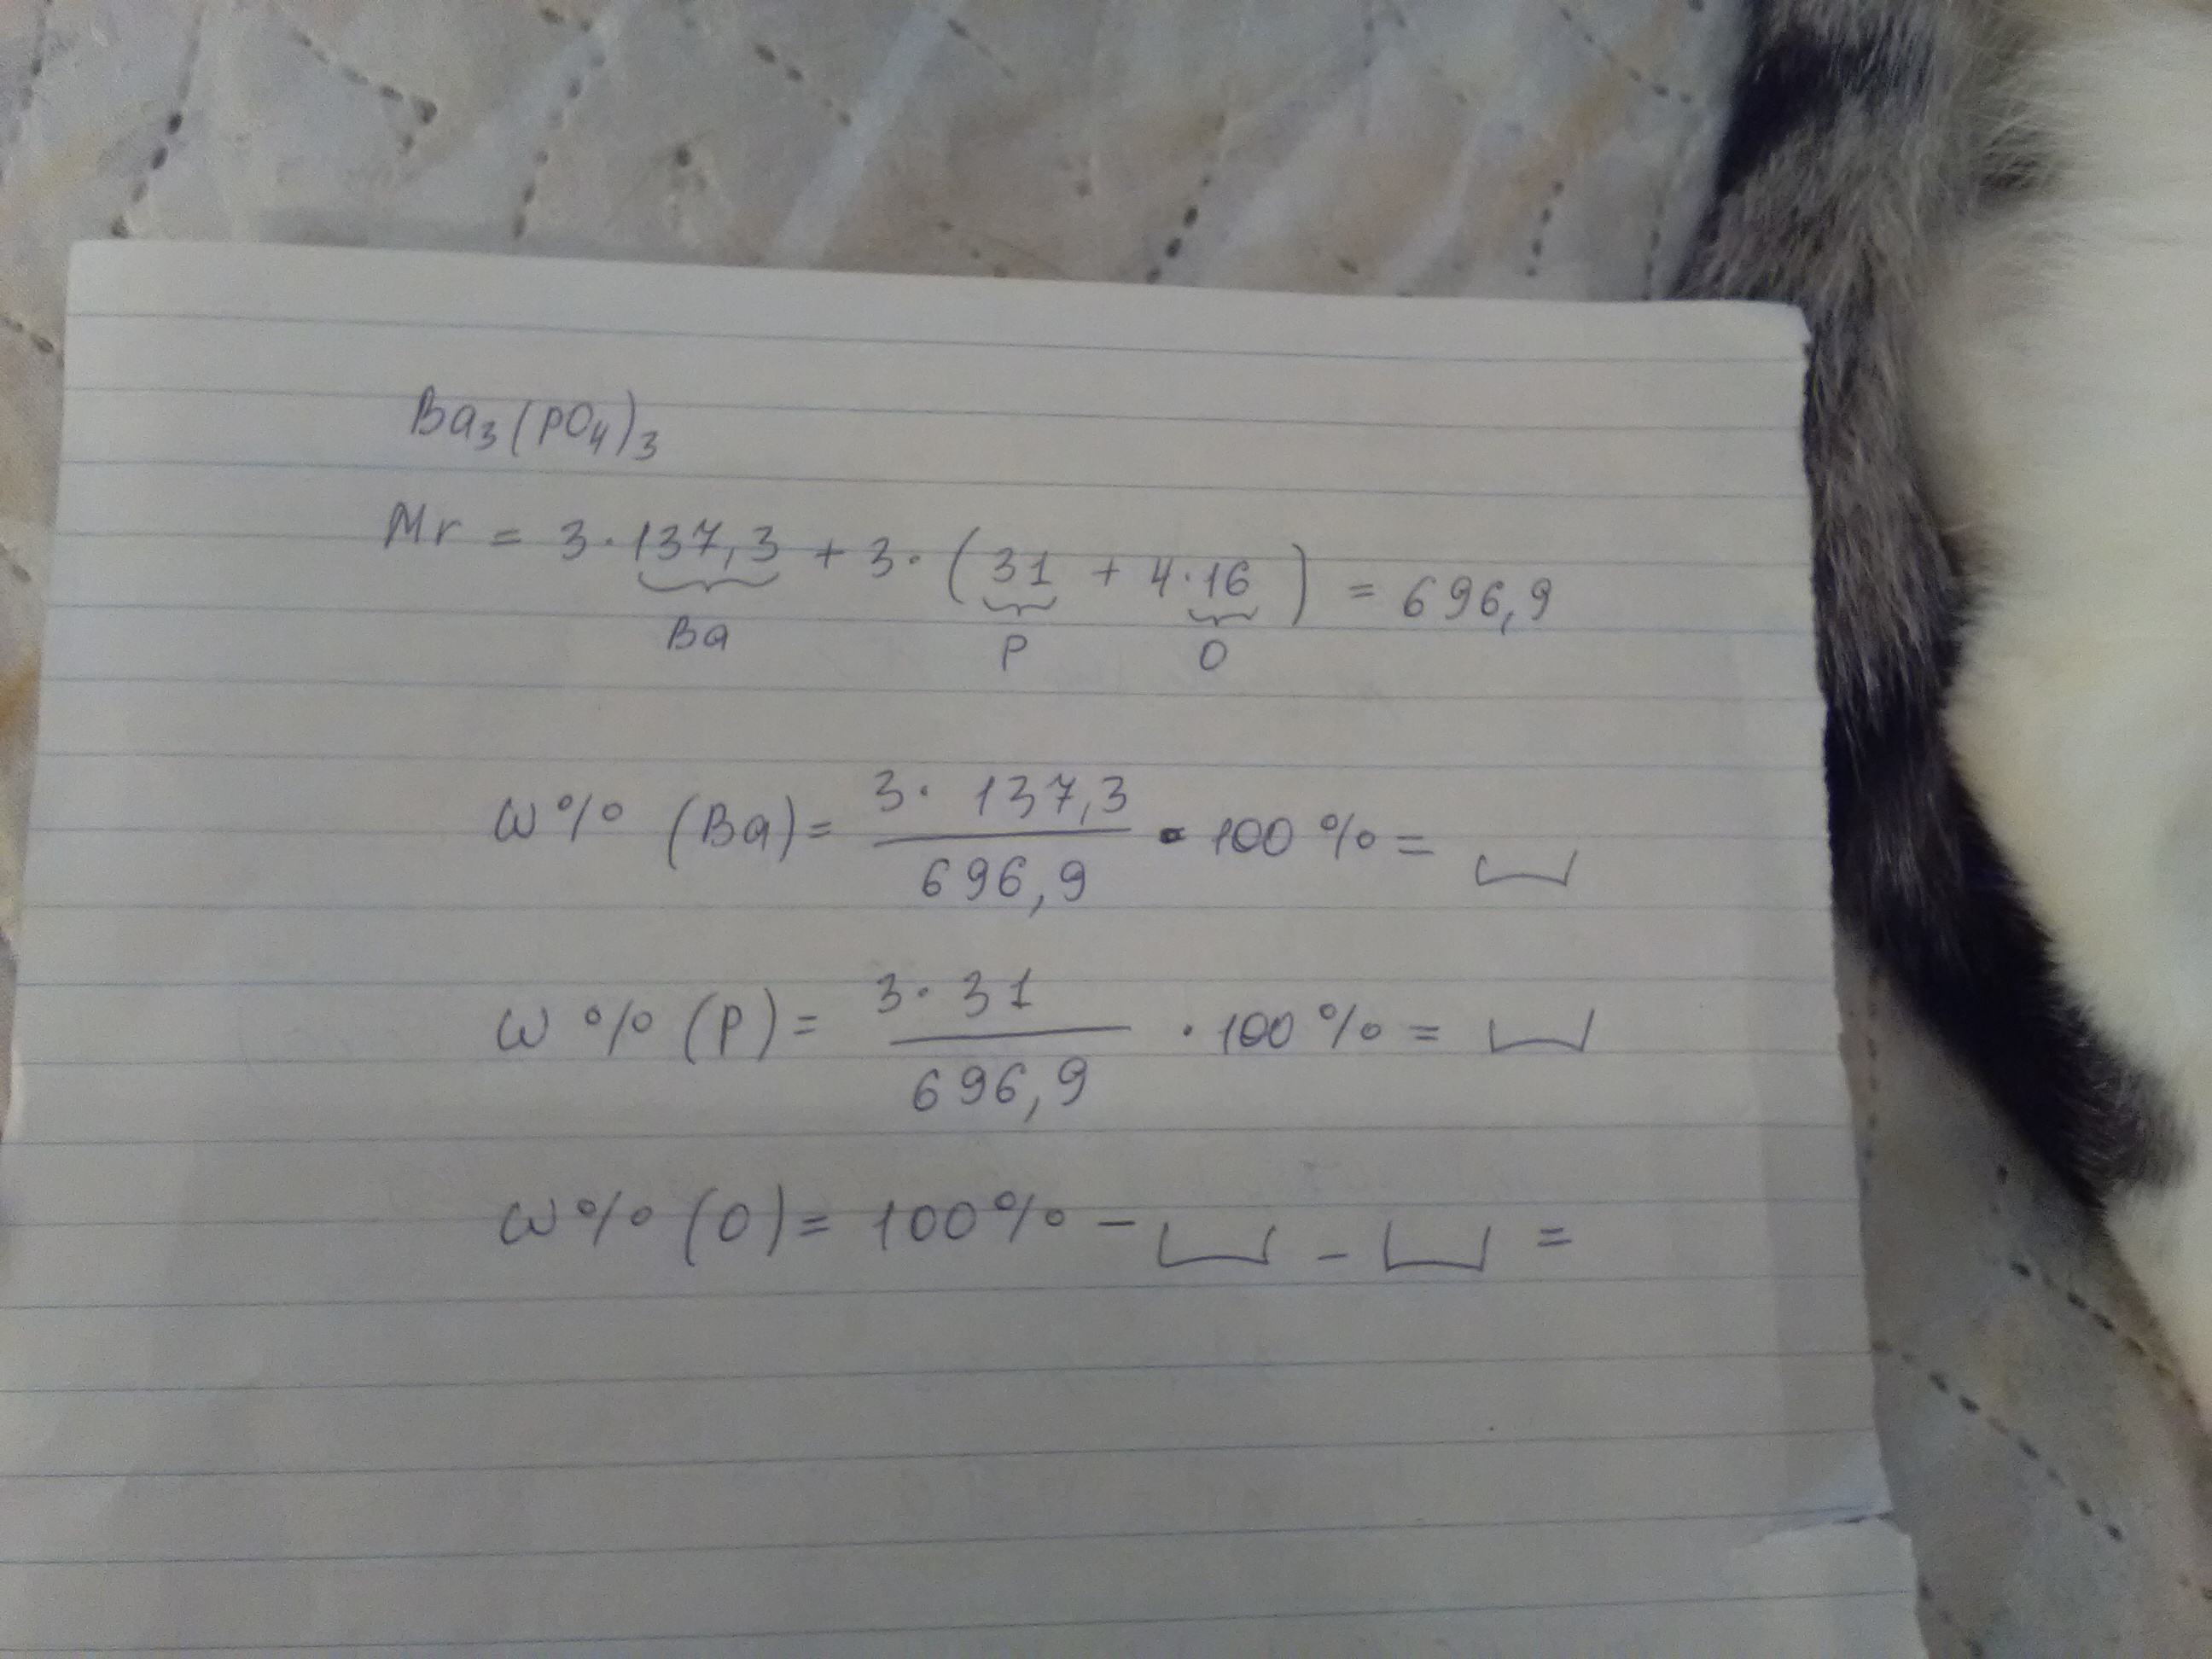 Ba₃(PO₄)₃
Mr = 3·137,3 + 3·(31 + 4·16) = 696,9
Ba P O
ω% (Ba) = 3· 137,3 / 696,9 · 100% =
ω% (P) = 3·31 / 696,9 · 100% =
ω% (O) = 100% - - =